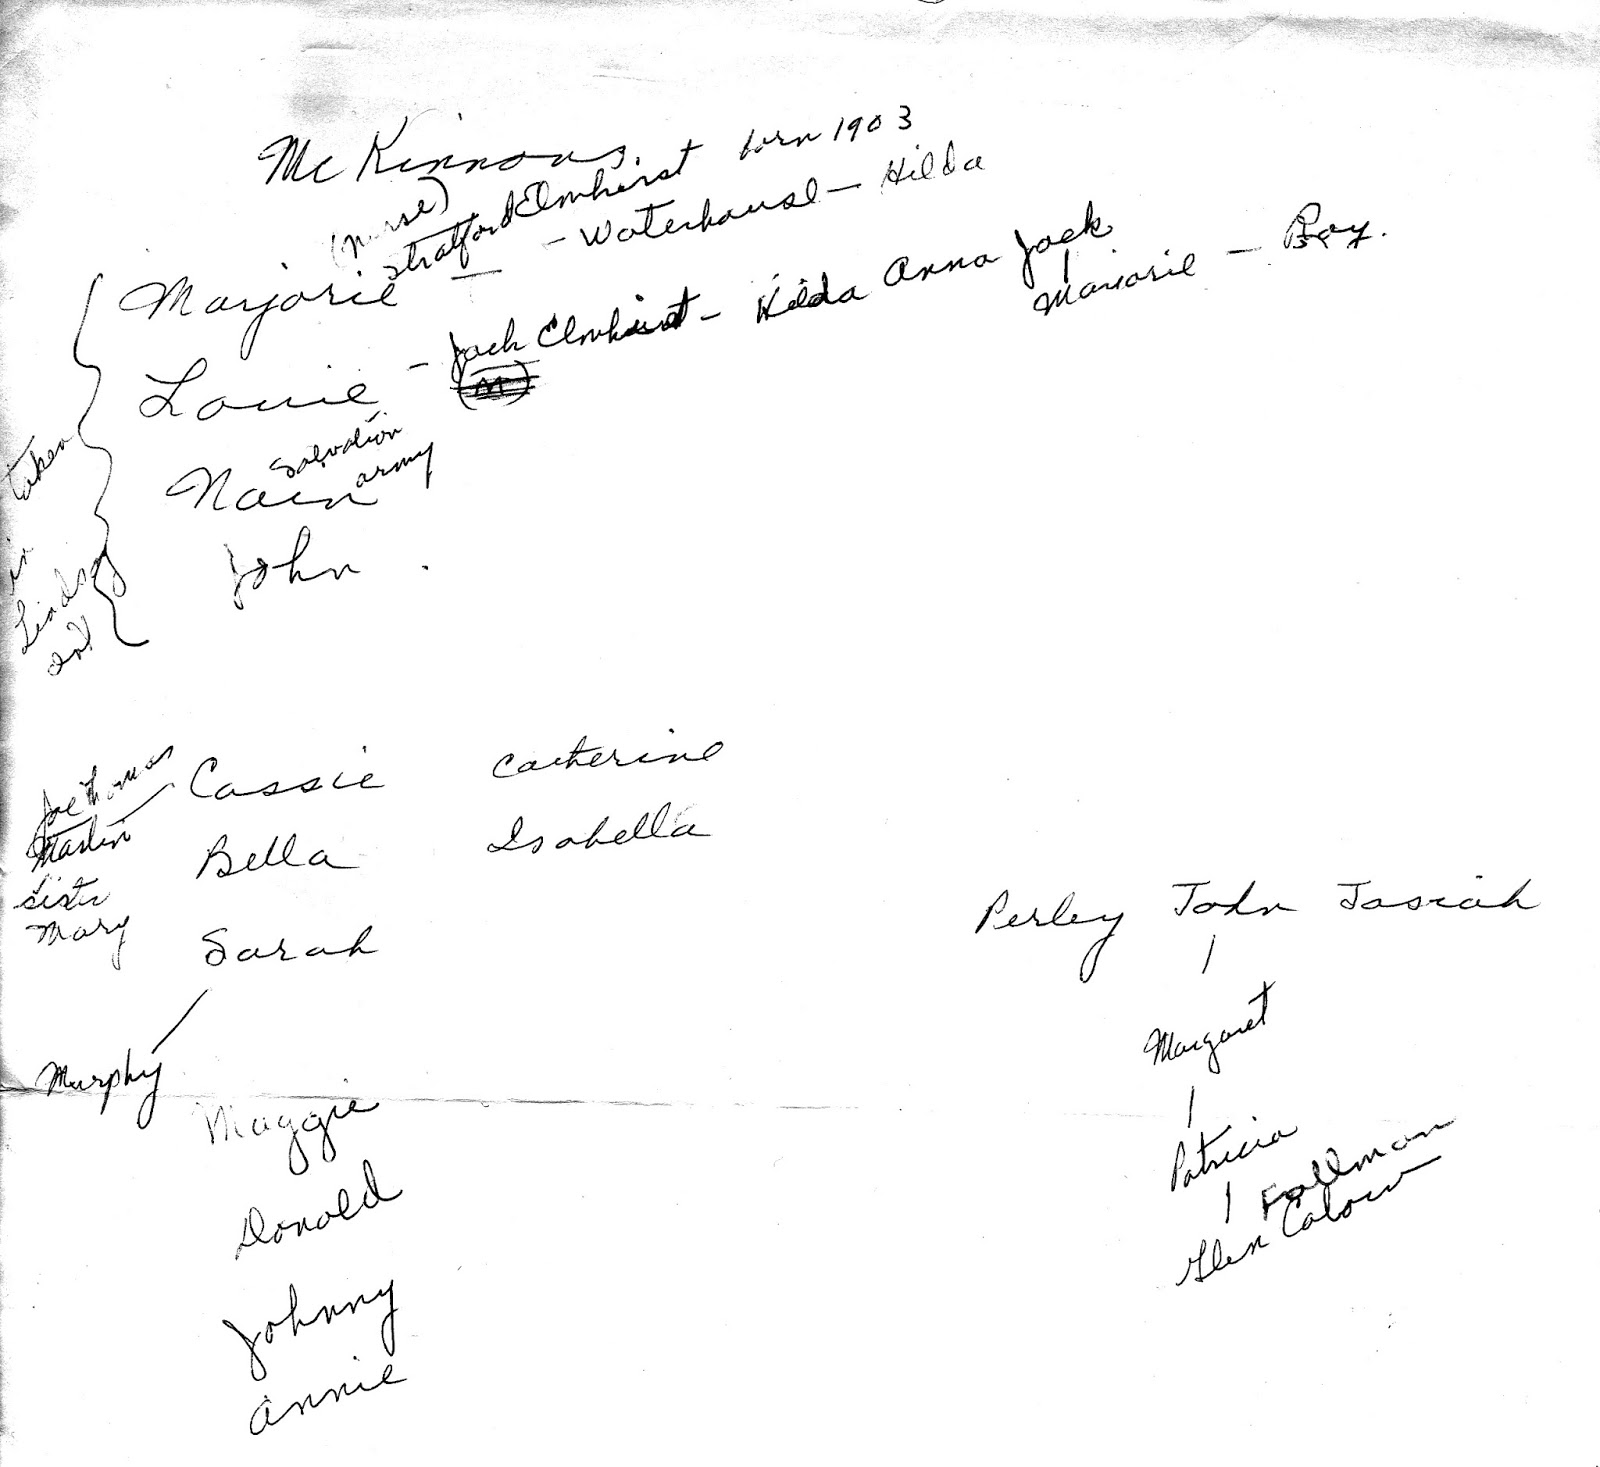 McKinnons.
(nurse)
Stratford Elmhirst born 1903
Marjorie — - Waterhouse - Hilda
Louie - Jack Elmhirst - Hilda Anna Jack
(M)
Marjorie - Roy.
Salvation
army
Nain
John .
taken
in
Lindsay
Ont
Joe Thomas
Martin
Sister
Mary
Cassie Catherine
Bella Isabella
Sarah
Murphy
Maggie
Donald
Johnny
Annie
Perley John Josiah
Margaret
Patricia
Fallman
Glen Calow